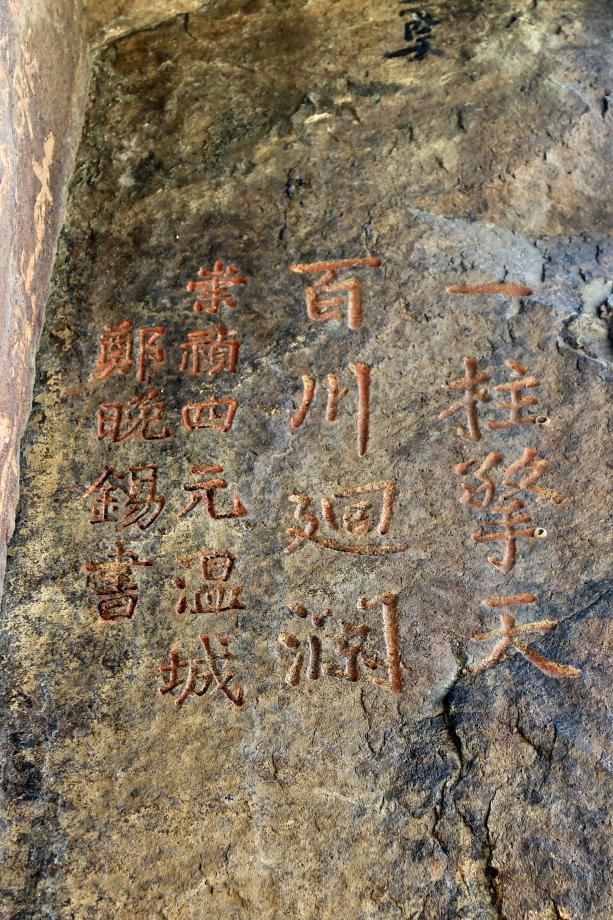 一柱擎天
百川廻瀾
崇禎四元温城
鄭晚錫書